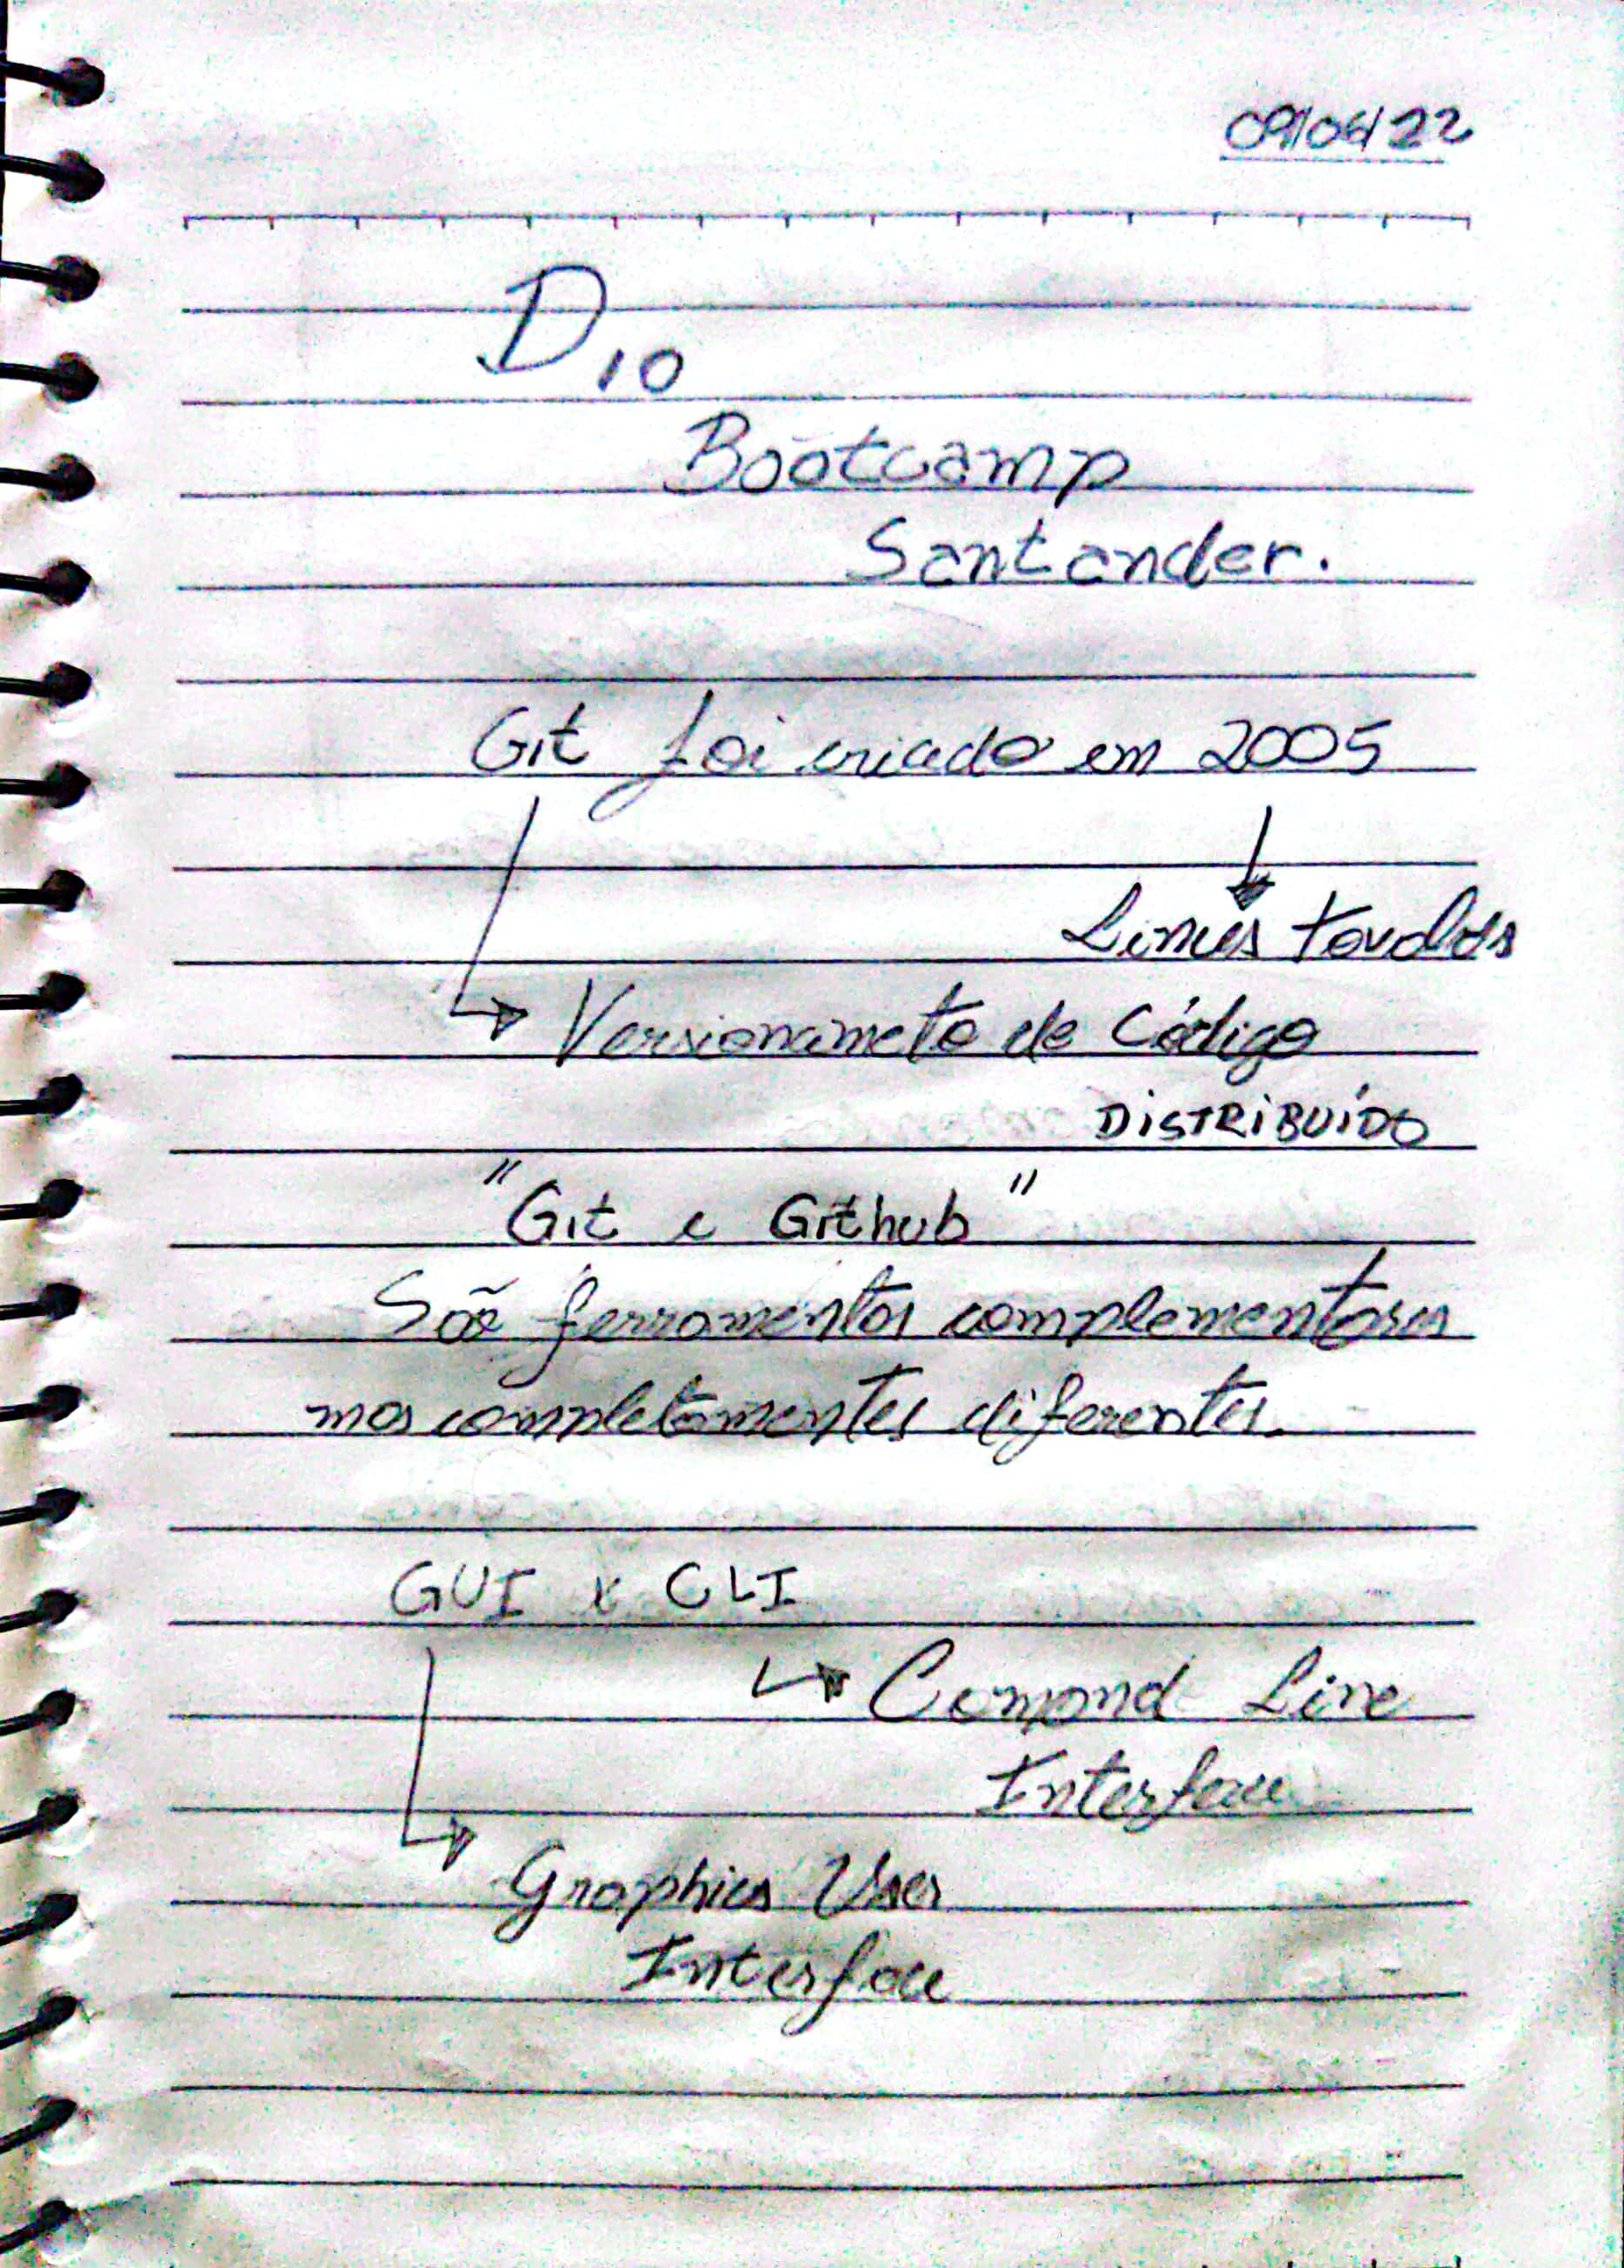 09/06/22
Dio
Bootcamp
Santander.
Git foi criado em 2005
Linus Tovalds
Versionameto de Código
DISTRIBUÍDO
"Git e Github"
São ferramentas complementares
mas completamentes diferentes.
GUI x CLI
Comand Line
Interface
Graphics User
Interface